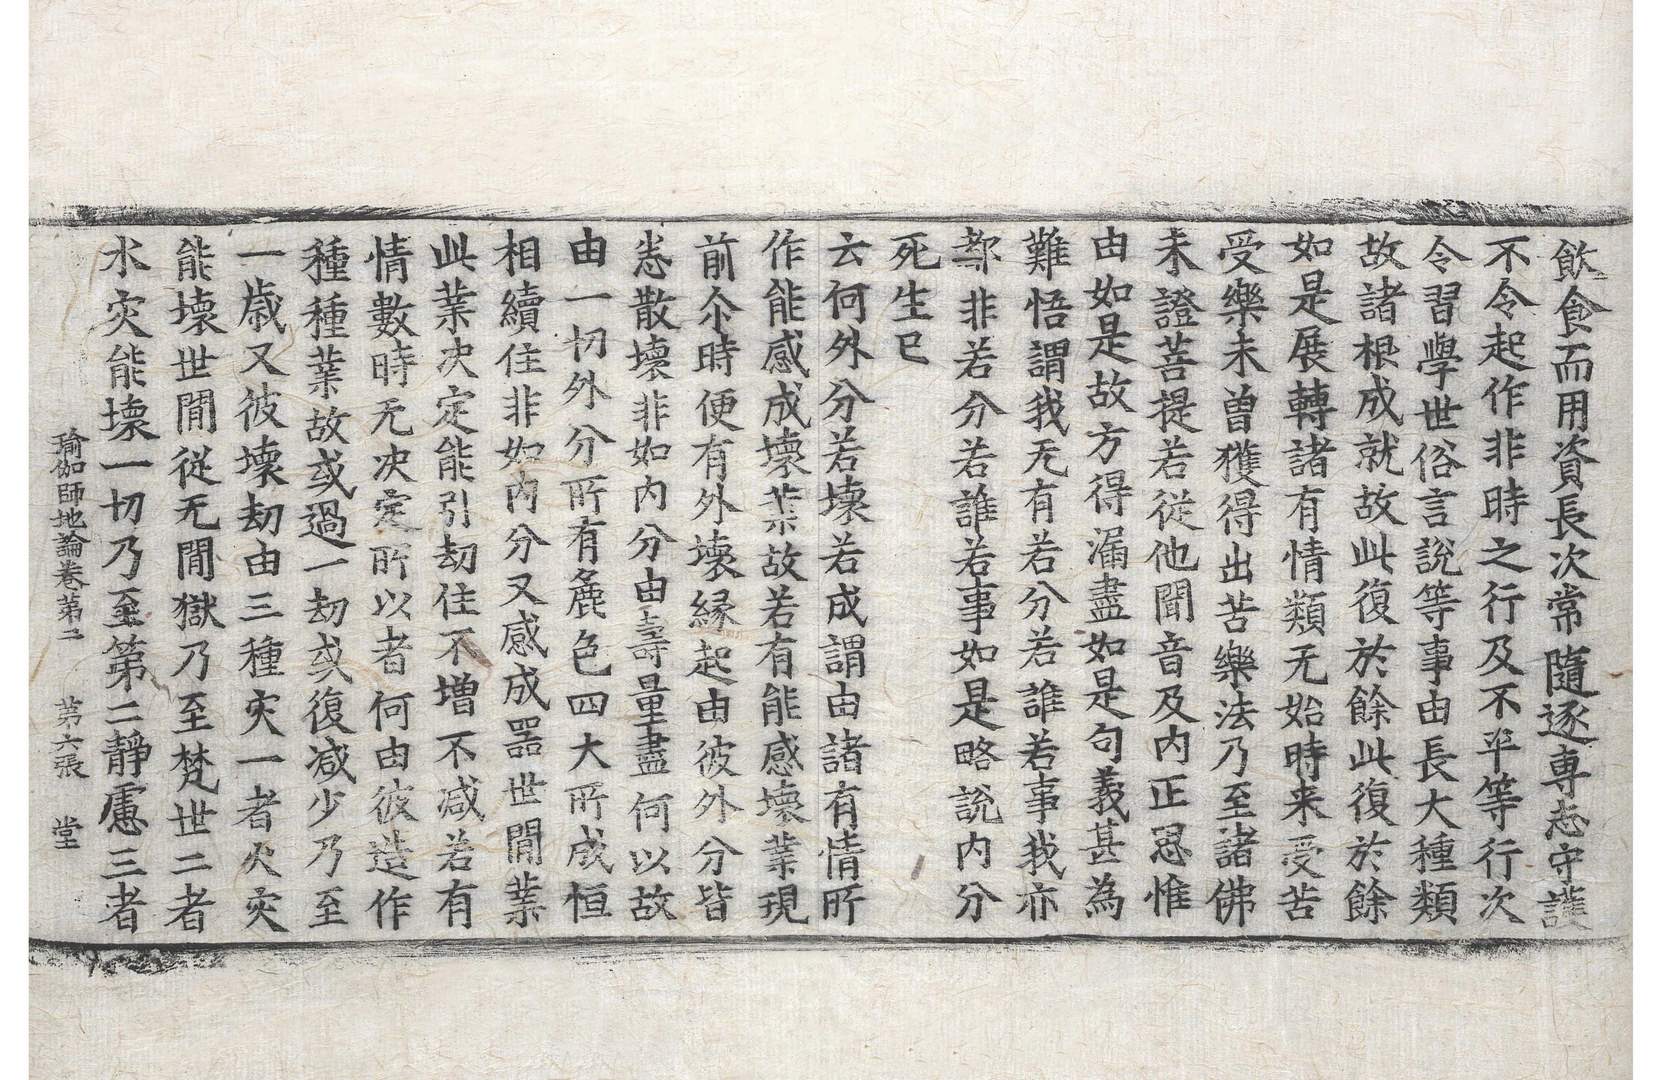 飲食而用資長次常隨逐專志守護
不令起作非時之行及不平等行次
令習學世俗言說等事由長大種類
故諸根成就故此復於餘此復於餘
如是展轉諸有情類无始時来受苦
受樂未曾獲得出苦樂法乃至諸佛
未證菩提若從他聞音及内正思惟
由如是故方得漏盡如是句義甚為
難悟謂我无有若分若誰若事我亦
都非若分若誰若事如是略說内分
死生已
云何外分若壞若成謂由諸有情所
作能感成壞業故若有能感壞業現
前尒時便有外壞縁起由彼外分皆
悉散壞非如内分由壽量盡何以故
由一切外分所有麁色四大所成恒
相續住非如内分又感成器世間業
此業决定能引劫住不增不减若有
情數時无决定所以者何由彼造作
種種業故或過一劫或復减少乃至
一歳又彼壞劫由三種灾一者火灾
能壞世間從无間獄乃至梵世二者
水灾能壞一切乃至第二靜慮三者
瑜伽師地論卷第二 第六張 堂